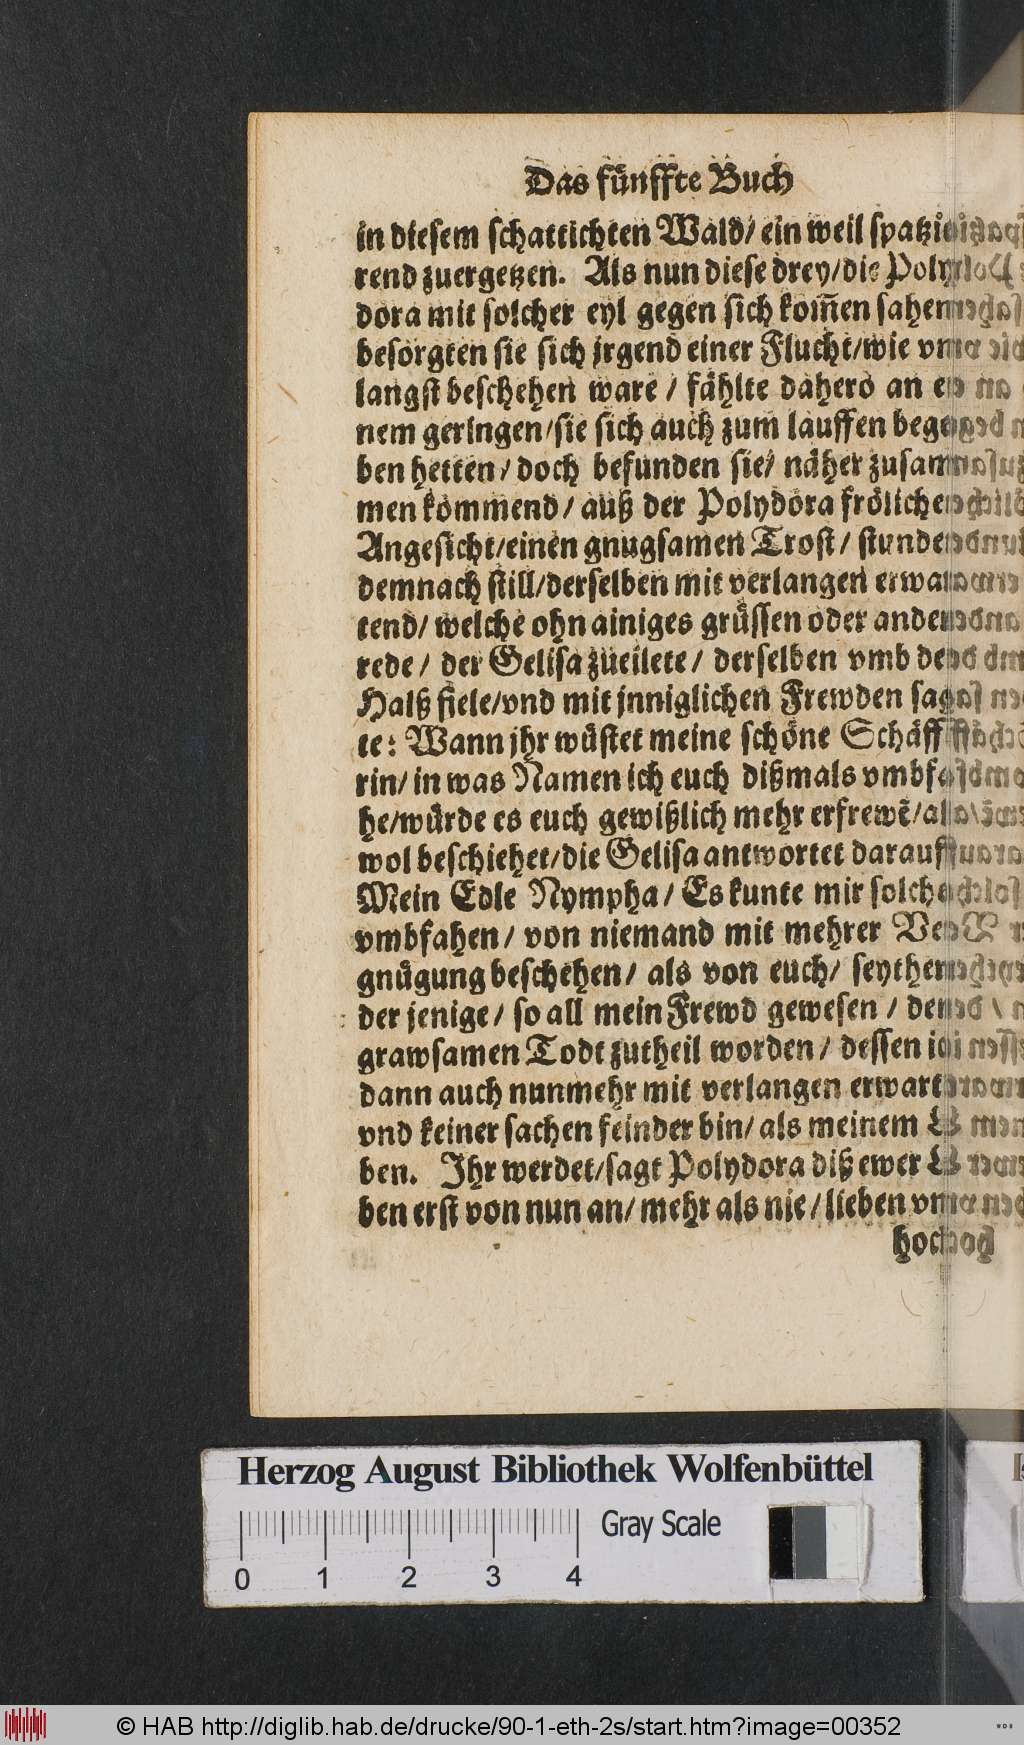 Das fünffte Buch
in diesem schattichten Wald/ ein weil spatzi
rend zuergetzen. Als nun diese drey/die Poly
dora mit solcher eyl gegen sich kom̃en sahen
besorgten sie sich jrgend einer Flucht/wie vm
langst beschehen ware / fählte dahero an
nem geringen/sie sich auch zum lauffen bege
ben hetten/ doch befunden sie/ näher zusam
men kommend/ auß der Polydora frölichen
Angesicht/einen gnugsamen Trost/ stunden
demnach still/derselben mit verlangen erwar
tend/ welche ohn ainiges grüssen oder ander
rede/ der Gelisa zueilete/ derselben vmb den
Halß fiele/vnd mit jnniglichen Frewden sag
te: Wann jhr wüstet meine schöne Schäff
rin/ in was Namen ich euch dißmals vmbfa
he/würde es euch gewißlich mehr erfrewẽ/als
wol beschiehet/die Gelisa antwortet darauff
Mein Edle Nympha/ Es kunte mir solch
vmbfahen/ von niemand mit mehrer Ver
gnügung beschehen/ als von euch/ seythem
der jenige/ so all mein Frewd gewesen / dem
grawsamen Todt zutheil worden/ dessen ich
dann auch nunmehr mit verlangen erwart
vnd keiner sachen feinder bin/ als meinem
ben. Ihr werdet/sagt Polydora diß ewer
ben erst von nun an/ mehr als nie/ lieben vn
hoch
Herzog August Bibliothek Wolfenbüttel
Gray Scale
0 1 2 3 4
© HAB http://diglib.hab.de/drucke/90-1-eth-2s/start.htm?image=00352